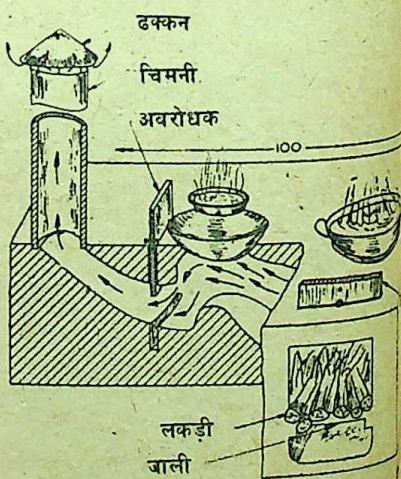 ढक्कन
चिमनी
अवरोधक
100
लकड़ी
जाली